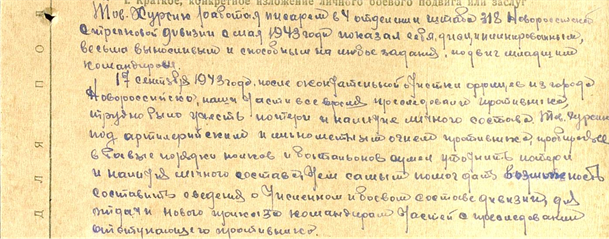 I. Краткое, конкретное изложение личного боевого подвига или заслуг
Тов. Хургин работая писарем в 4 отделении штаба 318 Новороссийской
стрелковой дивизии с мая 1943 года показал себя, дисциплинированным,
весьма выносливым и способным на любые задания, младшим
командиром.
17 сентября 1943 года, после окончательной чистки фрицев из города
Новороссийска, наши части все время преследовали противника,
трудно было учесть потери и наличие личного состава. Тов. Хургин
под артиллерийским и минометным огнем противника, пробирался
в боевые порядки полков и батальонов сумел уточнить потери
и наличия личного состава, тем самым помог дать возможность
составить сведения о численном и боевом составе дивизии, для
отдачи нового приказа командирам частей о преследовании
отступающего противника.
ДЛЯ ПОД